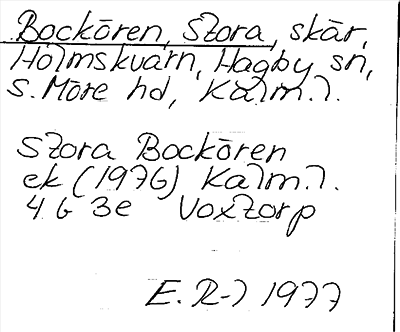 Bockören, Stora, skär,
Holmskvarn, Hagby sn,
S. Möre hd, Kalm. l.
Stora Bockören
ek (1976) Kalm. l.
4 G 3e Voxtorp
E. R-l 1977